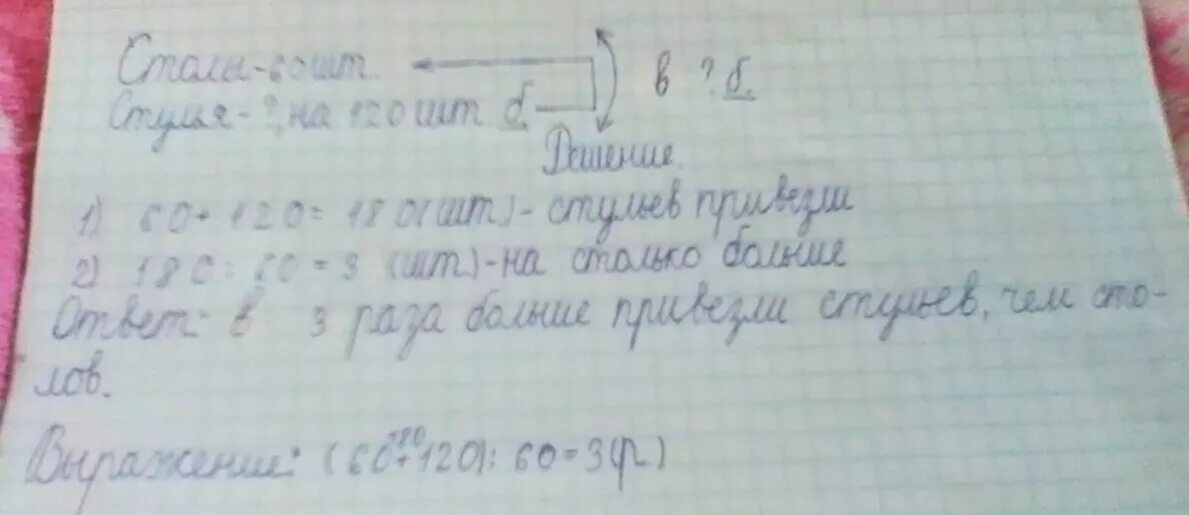 Столы - 60 шт.
Стулья - ?, на 120 шт б.
в ? б.
Решение.
1) 60 + 120 = 180 (шт) - стульев привезли
2) 180 : 60 = 3 (шт) - на столько больше
Ответ: в 3 раза больше привезли стульев, чем сто-
лов.
180
Выражение: (60 + 120) : 60 = 3 (р.)